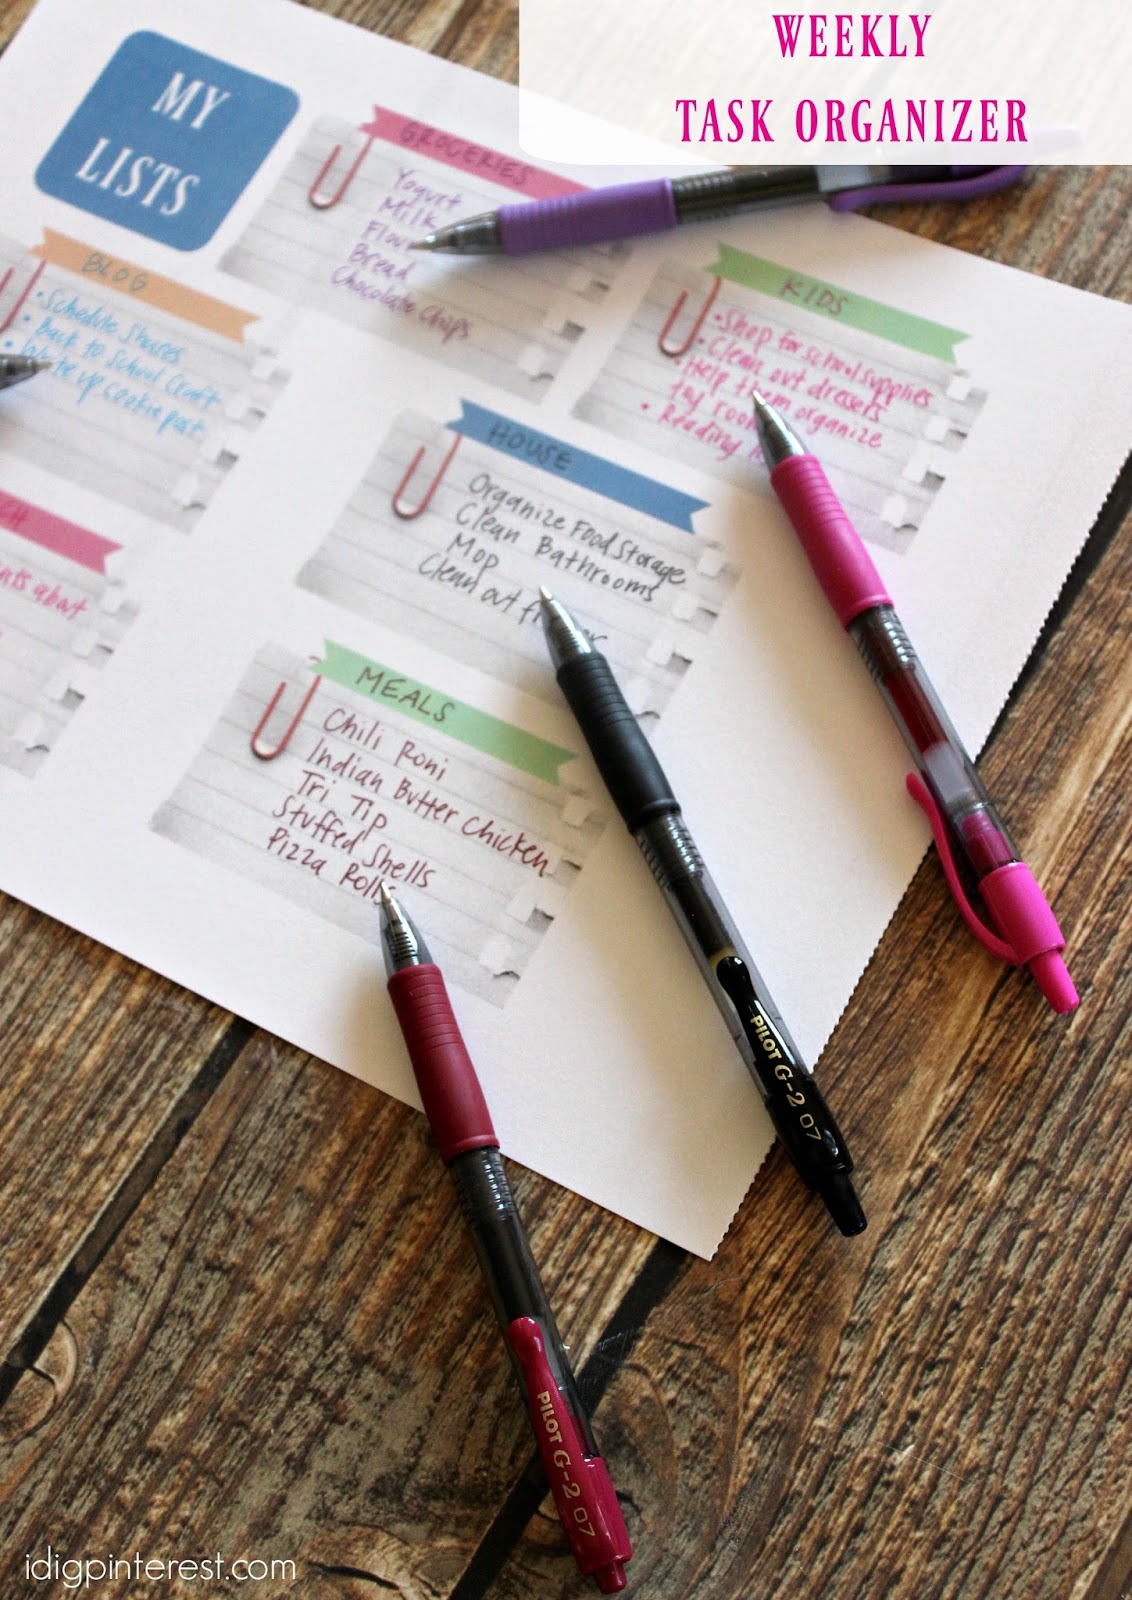 WEEKLY
TASK ORGANIZER
MY
LISTS
GROCERIES
Yogurt
Milk
Flour
Bread
Chocolate Chips
KIDS
• Shop for school supplies
• Clean out dressers
• Help them organize
toy room
• Reading
BLOG
• Schedule Shares
• Back to School Craft
• Write up cookie post
HOUSE
Organize Food Storage
Clean Bathrooms
Mop
Clean out
about
MEALS
Chili Roni
Indian Butter Chicken
Tri Tip
Stuffed Shells
Pizza Rolls
PILOT G-2 07
PILOT G-2 07
idigpinterest.com